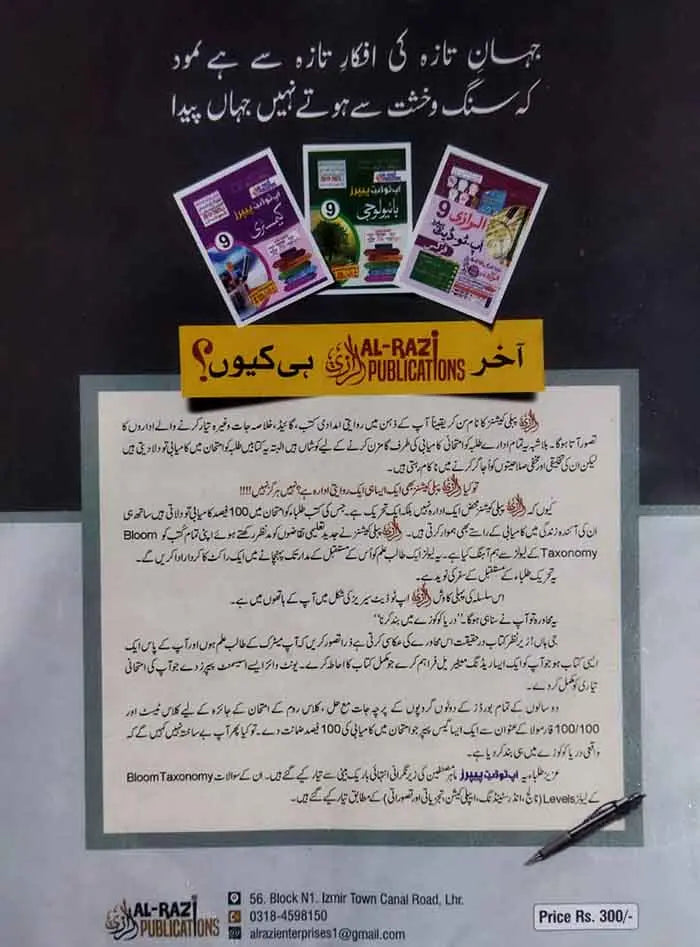 جہانِ تازہ کی افکارِ تازہ سے ہے نمود
کہ سنگ و خشت سے ہوتے نہیں جہاں پیدا
اپ ٹو ڈیٹ پیپرز
کیمسٹری
9
اپ ٹو ڈیٹ پیپرز
بائیولوجی
9
الرازی 9
اپ ٹو ڈیٹ
آخر رازی AL-RAZI PUBLICATIONS ہی کیوں؟
رازی پبلی کیشنز کا نام سن کر یقیناً آپ کے ذہن میں روایتی امدادی کتب، گائیڈ، خلاصہ جات وغیرہ تیار کرنے والے اداروں کا
تصور آتا ہوگا۔ بلاشبہ یہ تمام ادارے طلبہ کو امتحانی کامیابی کی طرف گامزن کرنے کے لیے کوشاں ہیں البتہ یہ کتابیں طلبہ کو امتحان میں کامیابی تو دلا دیتی ہیں
لیکن ان کی تخلیقی اور مخفی صلاحیتوں کو اُجاگر کرنے میں ناکام رہتی ہیں۔
تو کیا رازی پبلی کیشنز بھی ایک ایسا ہی ایک روایتی ادارہ ہے؟ نہیں ہرگز نہیں!!!!
کیوں کہ رازی پبلی کیشنز محض ایک ادارہ نہیں بلکہ ایک تحریک ہے۔ جس کی کتب طلباء کو امتحان میں 100 فیصد کامیابی تو دلاتی ہیں ساتھ ہی
ان کی آئندہ زندگی میں کامیابی کے راستے بھی ہموار کرتی ہیں۔ رازی پبلی کیشنز نے جدید تعلیمی تقاضوں کو مدنظر رکھتے ہوئے اپنی تمام کُتب کو Bloom
Taxonomy کے لیولز سے ہم آہنگ کیا ہے۔ یہ لیولز ایک طالب علم کو اُس کے مستقبل کے مدار تک پہنچانے میں ایک راکٹ کا کردار ادا کریں گے۔
یہ تحریک طلباء کے مستقبل کے سفر کی نوید ہے۔
اس سلسلہ کی پہلی کاوش رازی اپ ٹو ڈیٹ سیریز کی شکل میں آپ کے ہاتھوں میں ہے۔
یہ محاورہ تو آپ نے سنا ہی ہوگا۔ "دریا کو کوزے میں بند کرنا"
جی ہاں! زیر نظر کتاب در حقیقت اس محاورے کی عکاسی کرتی ہے ذرا تصور کریں کہ آپ میٹرک کے طالب علم ہوں اور آپ کے پاس ایک
ایسی کتاب ہو جو آپ کو ایک ایسا ریڈنگ مٹیریل فراہم کرے جو مکمل کتاب کا احاطہ کرے۔ یونٹ وائز ایسے اسیسمنٹ پیپرز دے جو آپ کی امتحانی
تیاری کو مکمل کر دے۔
دو سالوں کے تمام بورڈز کے دونوں گروپوں کے پرچہ جات مع حل، کلاس روم کے امتحان کے جائزہ کے لیے کلاس ٹیسٹ اور
100/100 فارمولا کے عنوان سے ایک ایسا گیس پیپر جو امتحان میں کامیابی کی 100 فیصد ضمانت دے۔ تو کیا پھر آپ بے ساختہ نہیں کہیں گے کہ
واقعی دریا کو کوزے میں ہی بند کر دیا ہے۔
عزیز طلباء یہ اپ ٹو ڈیٹ پیپرز ماہر مصنفین کی زیر نگرانی انتہائی باریک بینی سے تیار کیے گئے ہیں۔ ان کے سوالات Bloom Taxonomy
کے لیولز Levels (نالج، انڈرسٹینڈنگ، ایپلی کیشن، تجزیاتی اور تصوراتی) کے مطابق تیار کیے گئے ہیں۔
رازی AL-RAZI PUBLICATIONS
56. Block N1. Izmir Town Canal Road, Lhr.
0318-4598150
alrazienterprises1@gmail.com
Price Rs. 300/-